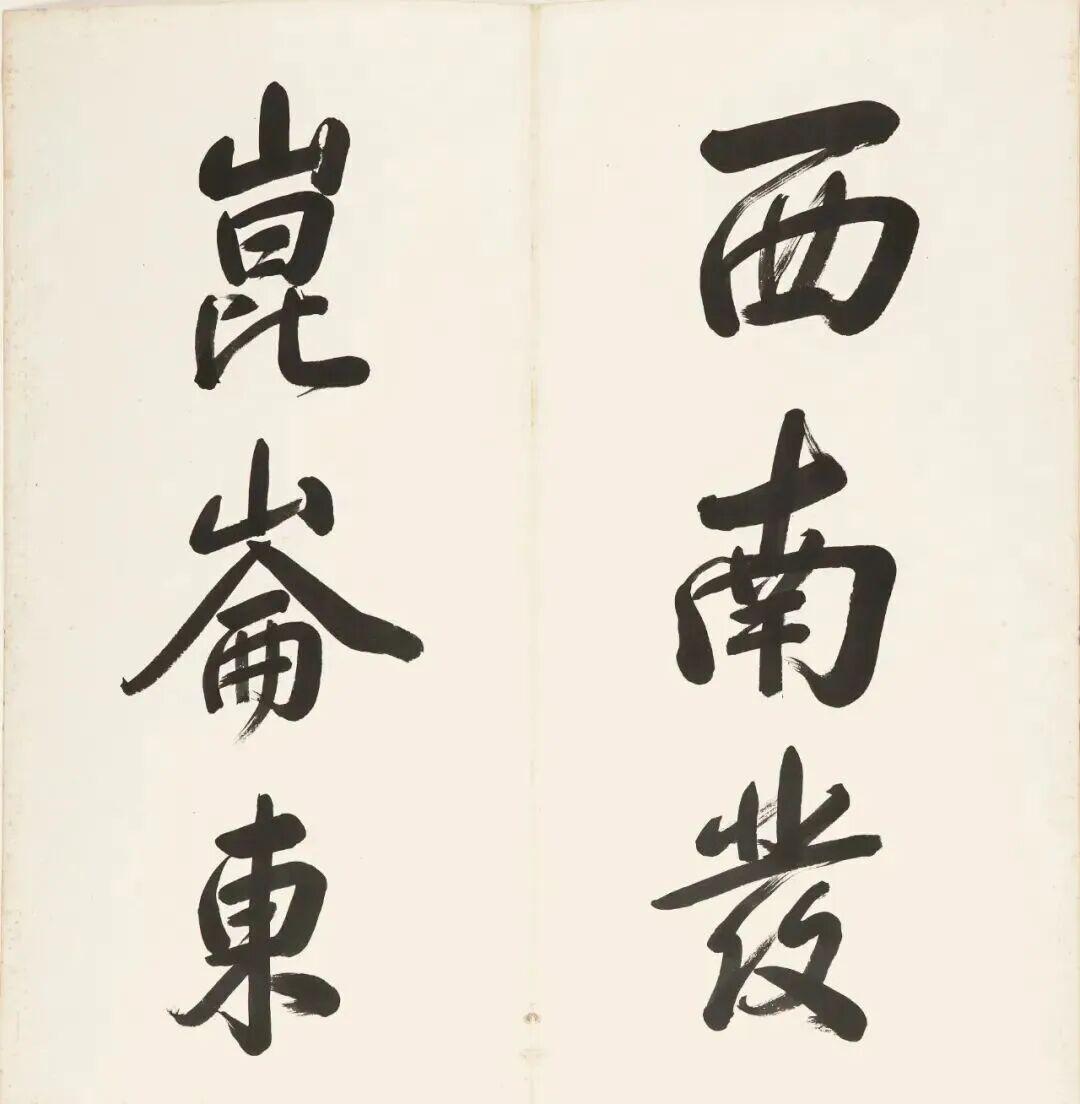 西南發
崑崙東